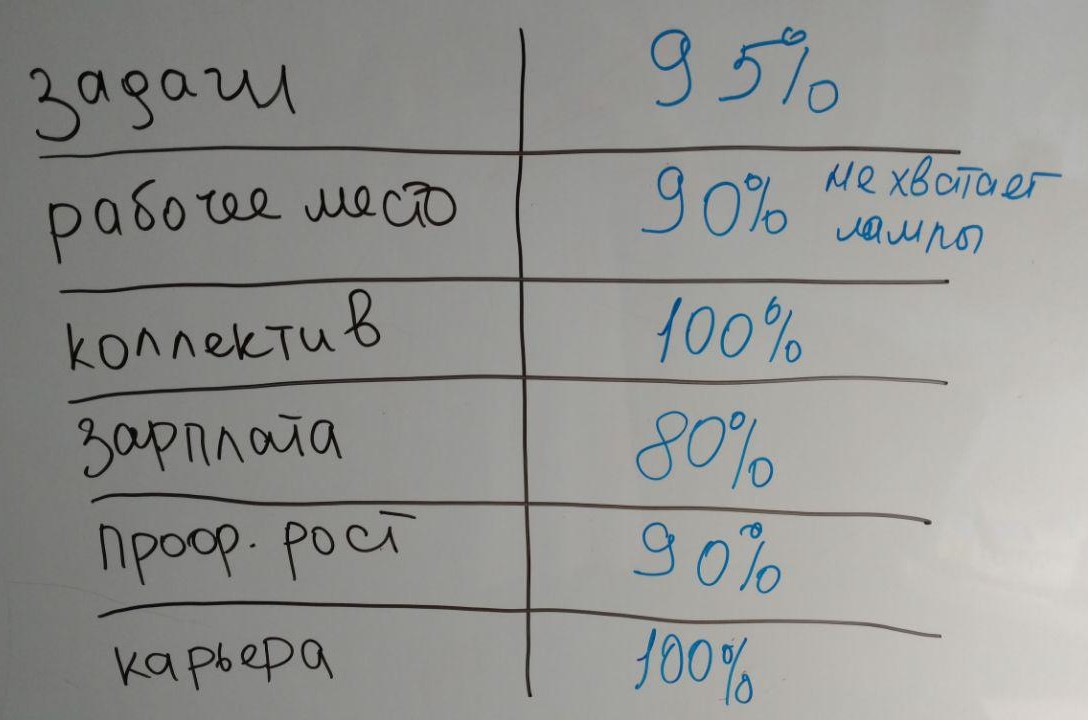 задачи 95%
рабочее место 90% не хватает
лампы
коллектив 100%
зарплата 80%
проф. рост 90%
карьера 100%